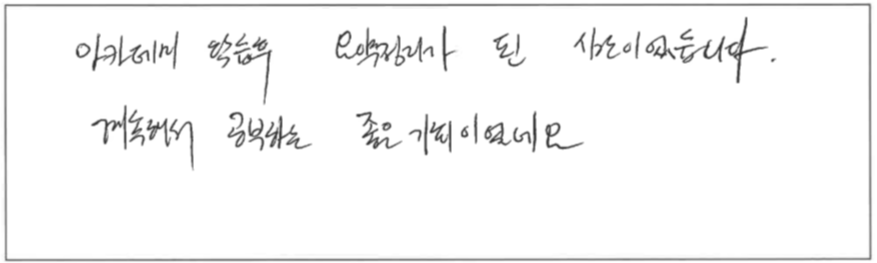 아카데미 학습후 요약정리가 된 시도이였습니다.
계속해서 공부하는 좋은 기회이였네요